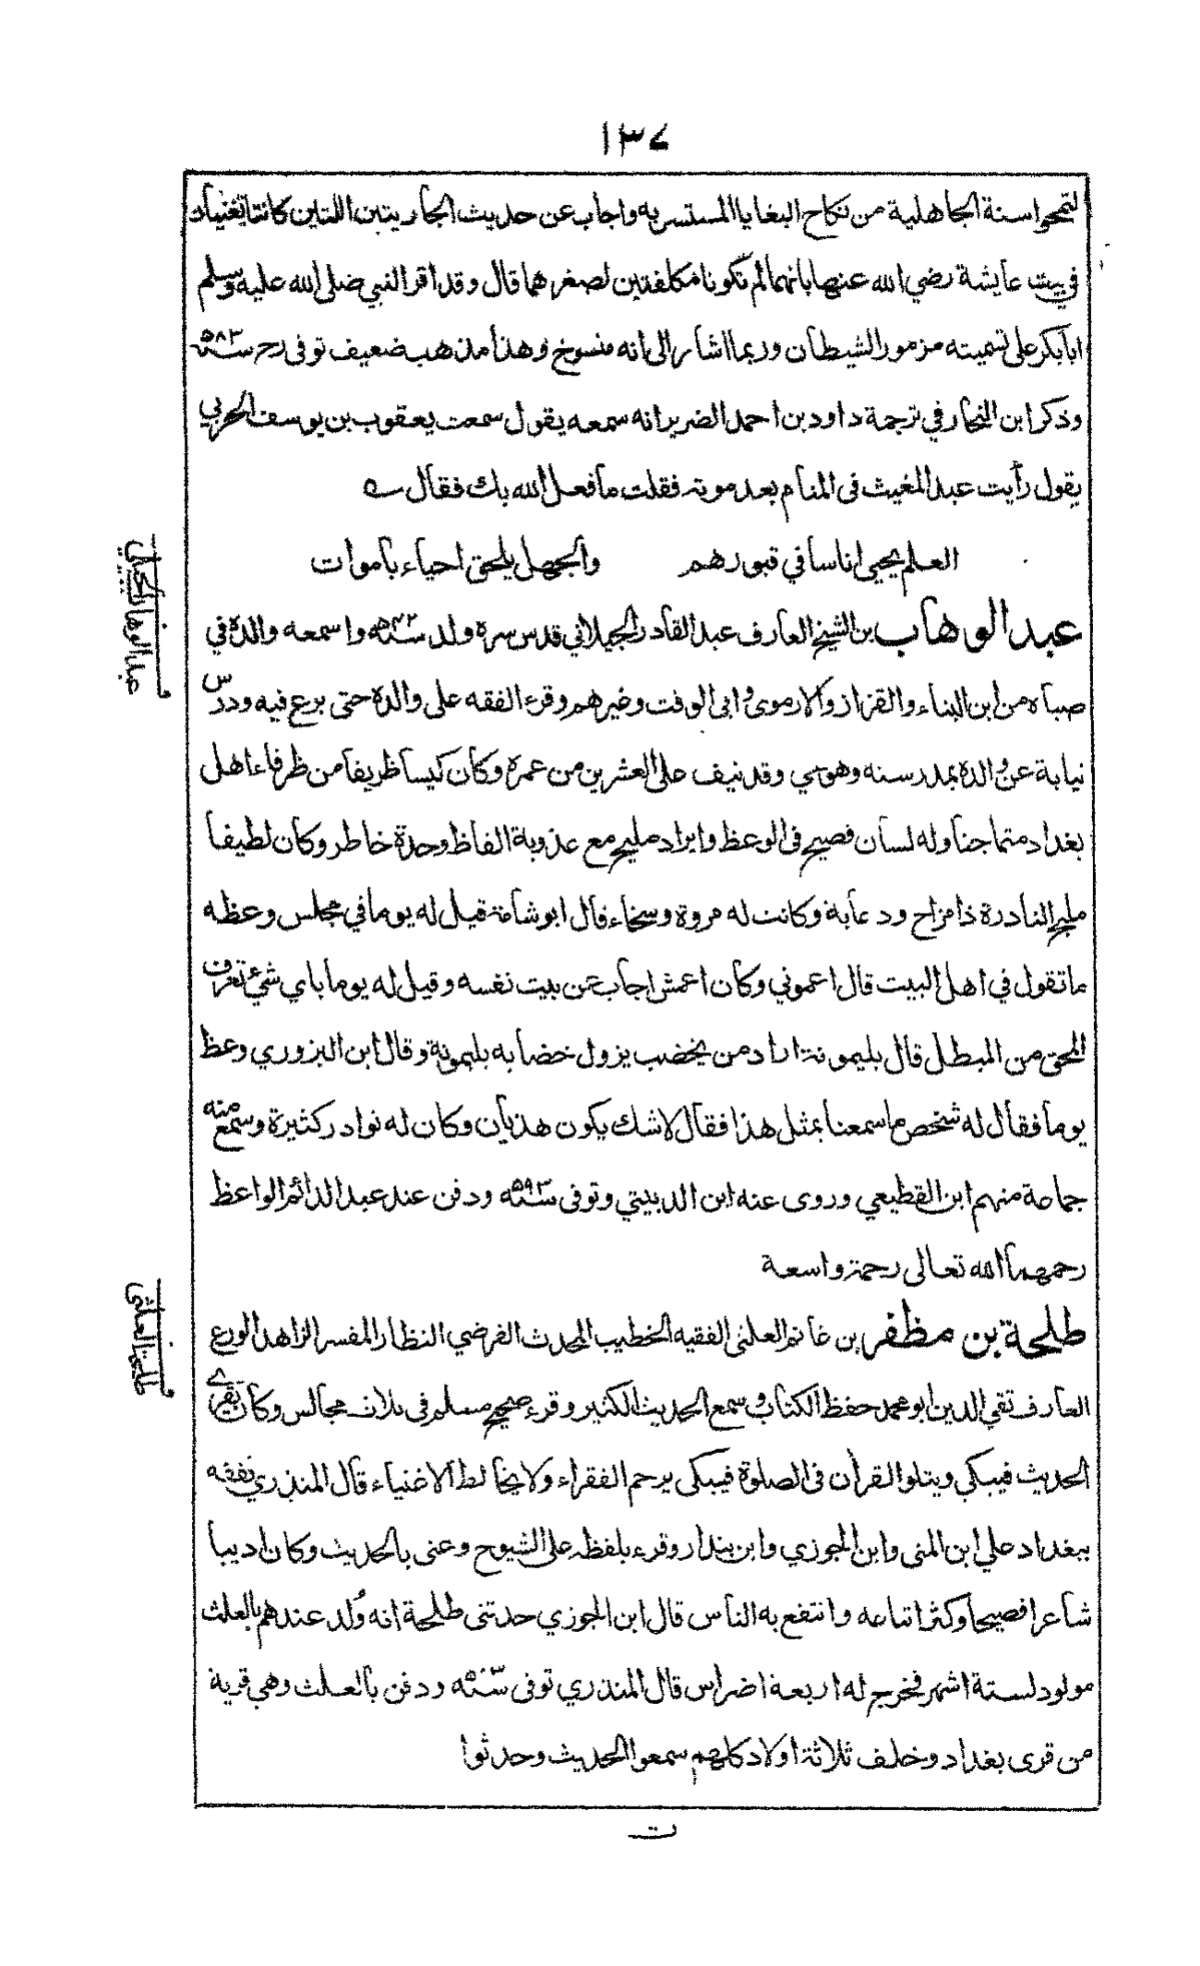 ١٣٧
لتمحوا سنة الجاهلية من نكاح البغايا المستسر به واجاب عن حديث الجاريتين اللتين كانتا تغنيان
في بيت عايشة رضي الله عنها بانهما لم تكونا مكلفتين لصغرهما قال وقد اقر النبي صلى الله عليه وسلم
ابا بكر على تسميته مزمور الشيطان وربما اشار الى انه منسوخ وهذا مذهب ضعيف توفى رح سنة ٥٨٣
وذكر ابن النجار في ترجمة داود بن احمد الضرير انه سمعه يقول سمعت يعقوب بن يوسف الحربي
يقول رأيت عبد المغيث فى المنام بعد موته فقلت ما فعل الله بك فقال
العلم يحيى اناسا في قبورهم والجهل يلحق احياء باموات
عبد الوهاب بن الشيخ العارف عبد القادر الجيلاني قدس سره ولد سنة ٥٢٢ واسمعه والده في
صباه من ابن البناء والقزاز والارموى وابى الوقت وغيرهم وقرء الفقه على والده حتى برع فيه ودرّس
نيابة عن والده بمدرسته وهو حي وقد نيف على العشرين من عمره وكان كيسا ظريفا من ظرفاء اهل
بغداد متماجنا وله لسان فصيح فى الوعظ وايراد مليح مع عذوبة الفاظ وحدة خاطر وكان لطيفا
مليح النادرة ذا مزاح ودعابة وكانت له مروة وسخاء قال ابو شامة قيل له يوما في مجلس وعظه
ما تقول في اهل البيت قال اعموني وكان اعمش اجاب عن بيت نفسه وقيل له يوما باي شيء تعرف
المحق من المبطل قال بليمونة اراد من يخضب يزول خضابه بليمونة وقال ابن البزوري وعظ
يوما فقال له شخص ما سمعنا بمثل هذا فقال لا شك يكون هذيان وكان له نوادر كثيرة وسمع منه
جماعة منهم ابن القطيعي وروى عنه ابن الدبيثي وتوفى سنة ٥٩٣ ودفن عند عبد الدائم الواعظ
رحمهما الله تعالى رحمة واسعة
طلحة بن مظفر بن غانم العلثى الفقيه الخطيب المحدث الفرضي النظار المفسر الزاهد الورع
العارف تقي الدين ابو محمد حفظ الكتاب وسمع الحديث الكثير وقرء صحيح مسلم فى ثلاث مجالس وكان يقرئ
الحديث فيبكي ويتلوا القرأن فى الصلوة فيبكي يرحم الفقراء ولا يخالط الاغنياء قال المنذري تفقه
ببغداد علي ابن المنى وابن الجوزي وابن بندار وقرء بلفظه على الشيوخ وعنى بالحديث وكان اديبا
شاعرا فصيحا وكثر اتباعه وانتفع به الناس قال ابن الجوزي حدثنى طلحة انه وُلد عندهم بالعلث
مولود لستة اشهر فخرج له اربعة اضراس قال المنذري توفى سنة ٥٩٣ ودفن بالعلث وهي قرية
من قرى بغداد وخلف ثلاثة اولاد كلهم سمعوا الحديث وحدثوا
عبد الوهاب الجيلي
طلحة العلثى
ت